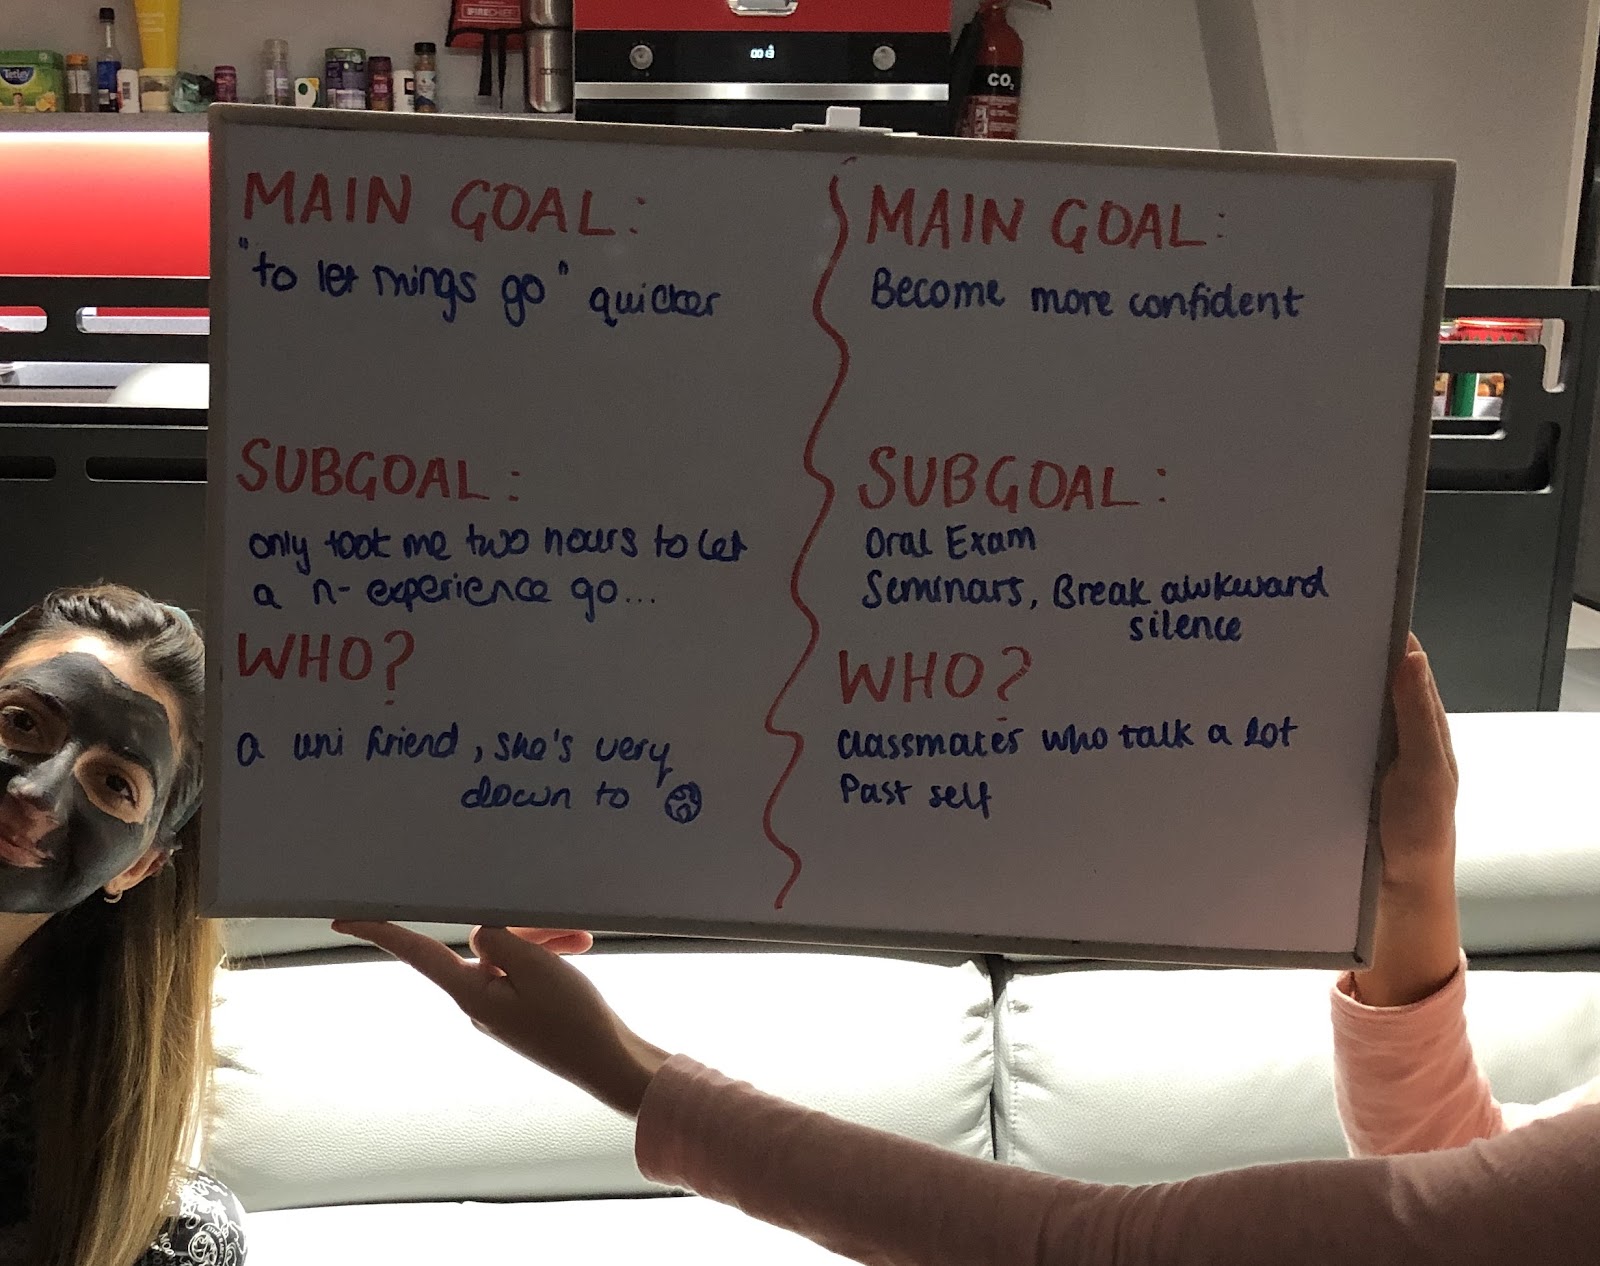 Tetley
FIRECHIEF
COFFEE
CO₂
MAIN GOAL:
"to let things go" quicker
SUBGOAL:
only took me two hours to let
a n- experience go...
WHO?
a uni friend, she's very
down to
MAIN GOAL:
Become more confident
SUBGOAL:
Oral Exam
Seminars, Break awkward
silence
WHO?
classmates who talk a lot
Past self